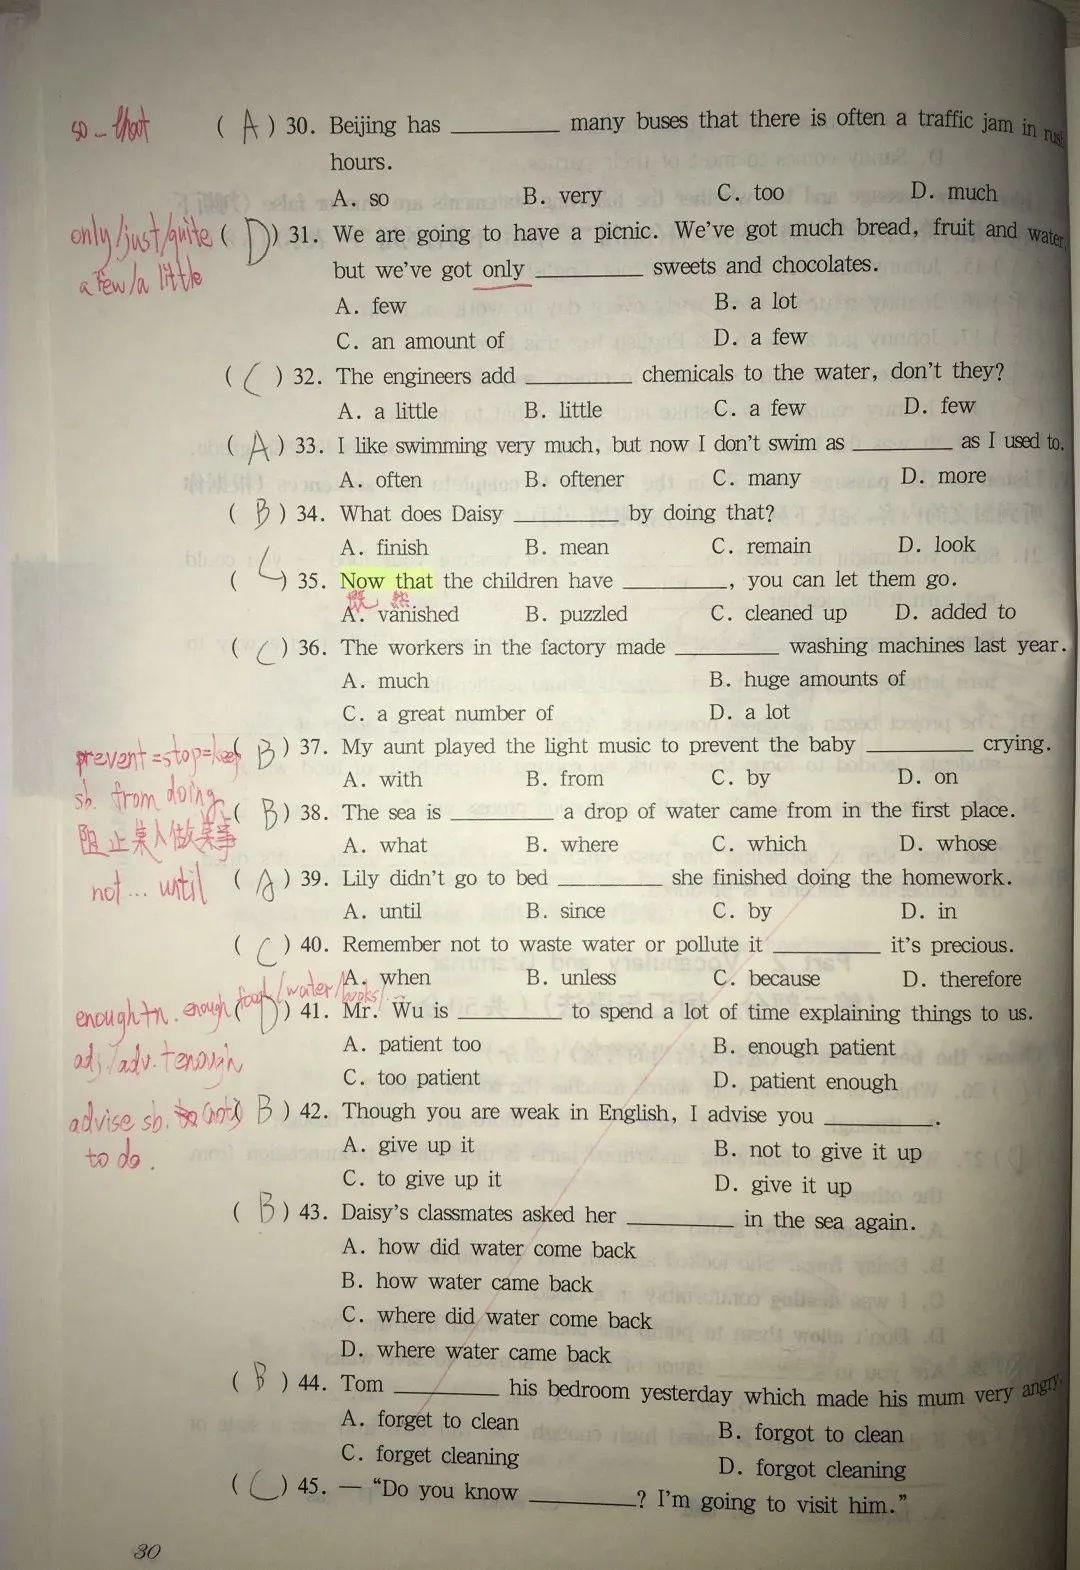 so … that
( A ) 30. Beijing has ________ many buses that there is often a traffic jam in rush
hours.
A. so B. very C. too D. much
only/just/quite
a few/a little
( D ) 31. We are going to have a picnic. We've got much bread, fruit and water,
but we've got only ________ sweets and chocolates.
A. few B. a lot
C. an amount of D. a few
( C ) 32. The engineers add ________ chemicals to the water, don't they?
A. a little B. little C. a few D. few
( A ) 33. I like swimming very much, but now I don't swim as ________ as I used to.
A. often B. oftener C. many D. more
( B ) 34. What does Daisy ________ by doing that?
A. finish B. mean C. remain D. look
( C ) 35. Now that the children have ________, you can let them go.
既然
A. vanished B. puzzled C. cleaned up D. added to
( C ) 36. The workers in the factory made ________ washing machines last year.
A. much B. huge amounts of
C. a great number of D. a lot
prevent=stop=keep
sb. from doing
阻止某人做某事
( B ) 37. My aunt played the light music to prevent the baby ________ crying.
A. with B. from C. by D. on
( B ) 38. The sea is ________ a drop of water came from in the first place.
A. what B. where C. which D. whose
not … until
( A ) 39. Lily didn't go to bed ________ she finished doing the homework.
A. until B. since C. by D. in
( C ) 40. Remember not to waste water or pollute it ________ it's precious.
A. when B. unless C. because D. therefore
enough+n. enough food/water/books/…
adj./adv.+enough
( D ) 41. Mr. Wu is ________ to spend a lot of time explaining things to us.
A. patient too B. enough patient
C. too patient D. patient enough
advise sb. (not)
to do.
( B ) 42. Though you are weak in English, I advise you ________.
A. give up it B. not to give it up
C. to give up it D. give it up
( B ) 43. Daisy's classmates asked her ________ in the sea again.
A. how did water come back
B. how water came back
C. where did water come back
D. where water came back
( B ) 44. Tom ________ his bedroom yesterday which made his mum very angry.
A. forget to clean B. forgot to clean
C. forget cleaning D. forgot cleaning
( C ) 45. — “Do you know ________? I'm going to visit him.”
30